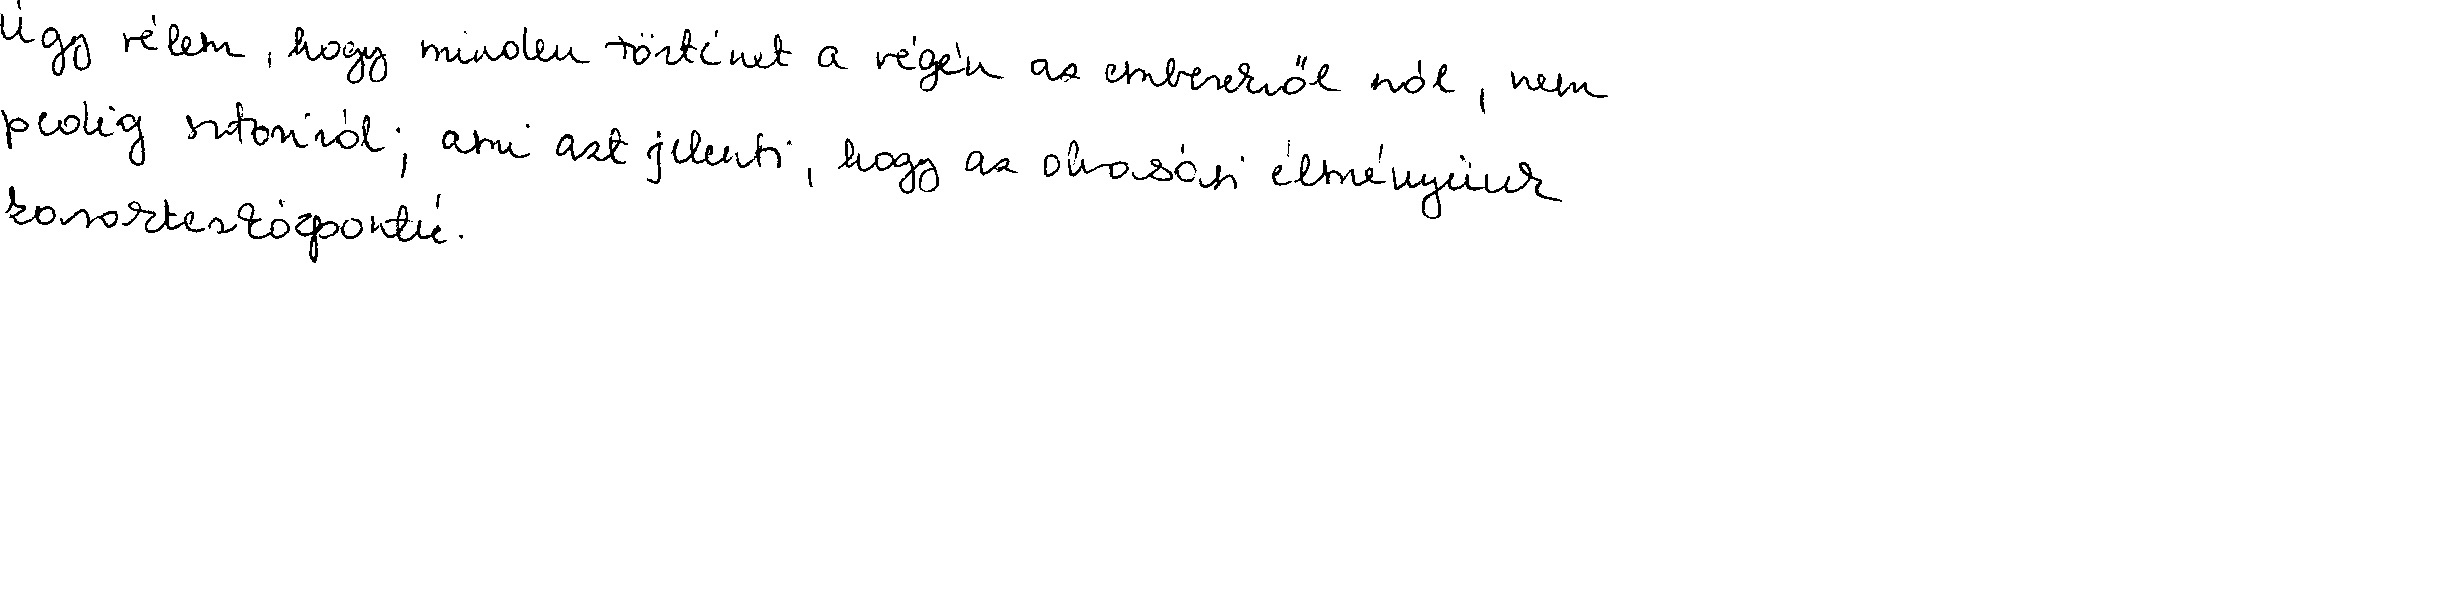 Úgy vélem, hogy minden történet a végén az emberekről szól, nem
pedig sztoriról; ami azt jelenti, hogy az olvasási élményünk
karakterközpontú.